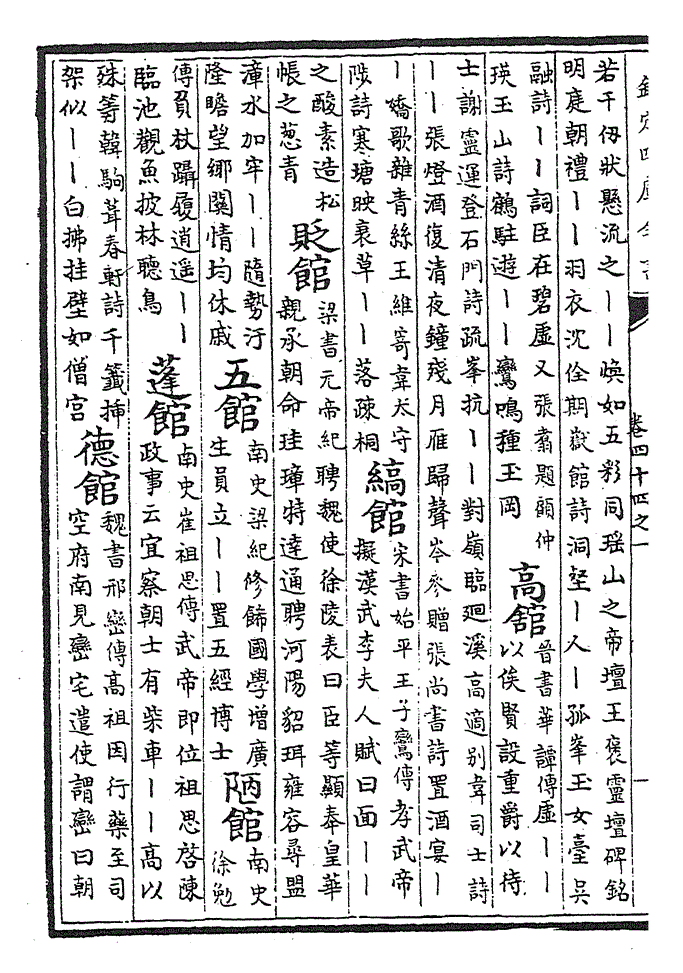 欽定四庫全書
卷四十四之一
若干仭狀懸流之丨丨煥如五彩同瑶山之帝壇王褒靈壇碑銘
明庭朝禮丨丨羽衣沈佺期嶽館詩洞壑丨人丨孤峯玉女臺吳
融詩丨丨詞臣在碧虛又張翥題顧仲
瑛玉山詩鶴駐遊丨丨鸞鳴種玉岡
高館
晉書華譚傳虛丨丨
以俟賢設重爵以待
士謝靈運登石門詩疏峯抗丨丨對嶺臨廻溪高適别韋司士詩
丨丨張燈酒復清夜鐘殘月雁歸聲岑參贈張尚書詩置酒宴丨
丨嬌歌雜青絲王維寄韋太守
陟詩寒塘映衰草丨丨落疎桐
縞館
宋書始平王子鸞傳孝武帝
擬漢武李夫人賦曰面丨丨
之酸素造松
帳之葱青
貶館
梁書元帝紀聘魏使徐陵表曰臣等顯奉皇華
親承朝命珪璋特達通聘河陽貂珥雍容尋盟
漳水加牢丨丨隨勢汙
隆瞻望鄉關情均休戚
五館
南史梁紀修飾國學增廣
生員立丨丨置五經博士
陋館
南史
徐勉
傳負杖躡履逍遥丨丨
臨池觀魚披林聽鳥
蓬館
南史崔祖思傳武帝即位祖思啓陳
政事云宜察朝士有柴車丨丨高以
殊等韓駒葺春軒詩千籤揷
架似丨丨白拂挂壁如僧宫
德館
魏書邢巒傳高祖因行藥至司
空府南見巒宅遣使謂巒曰朝